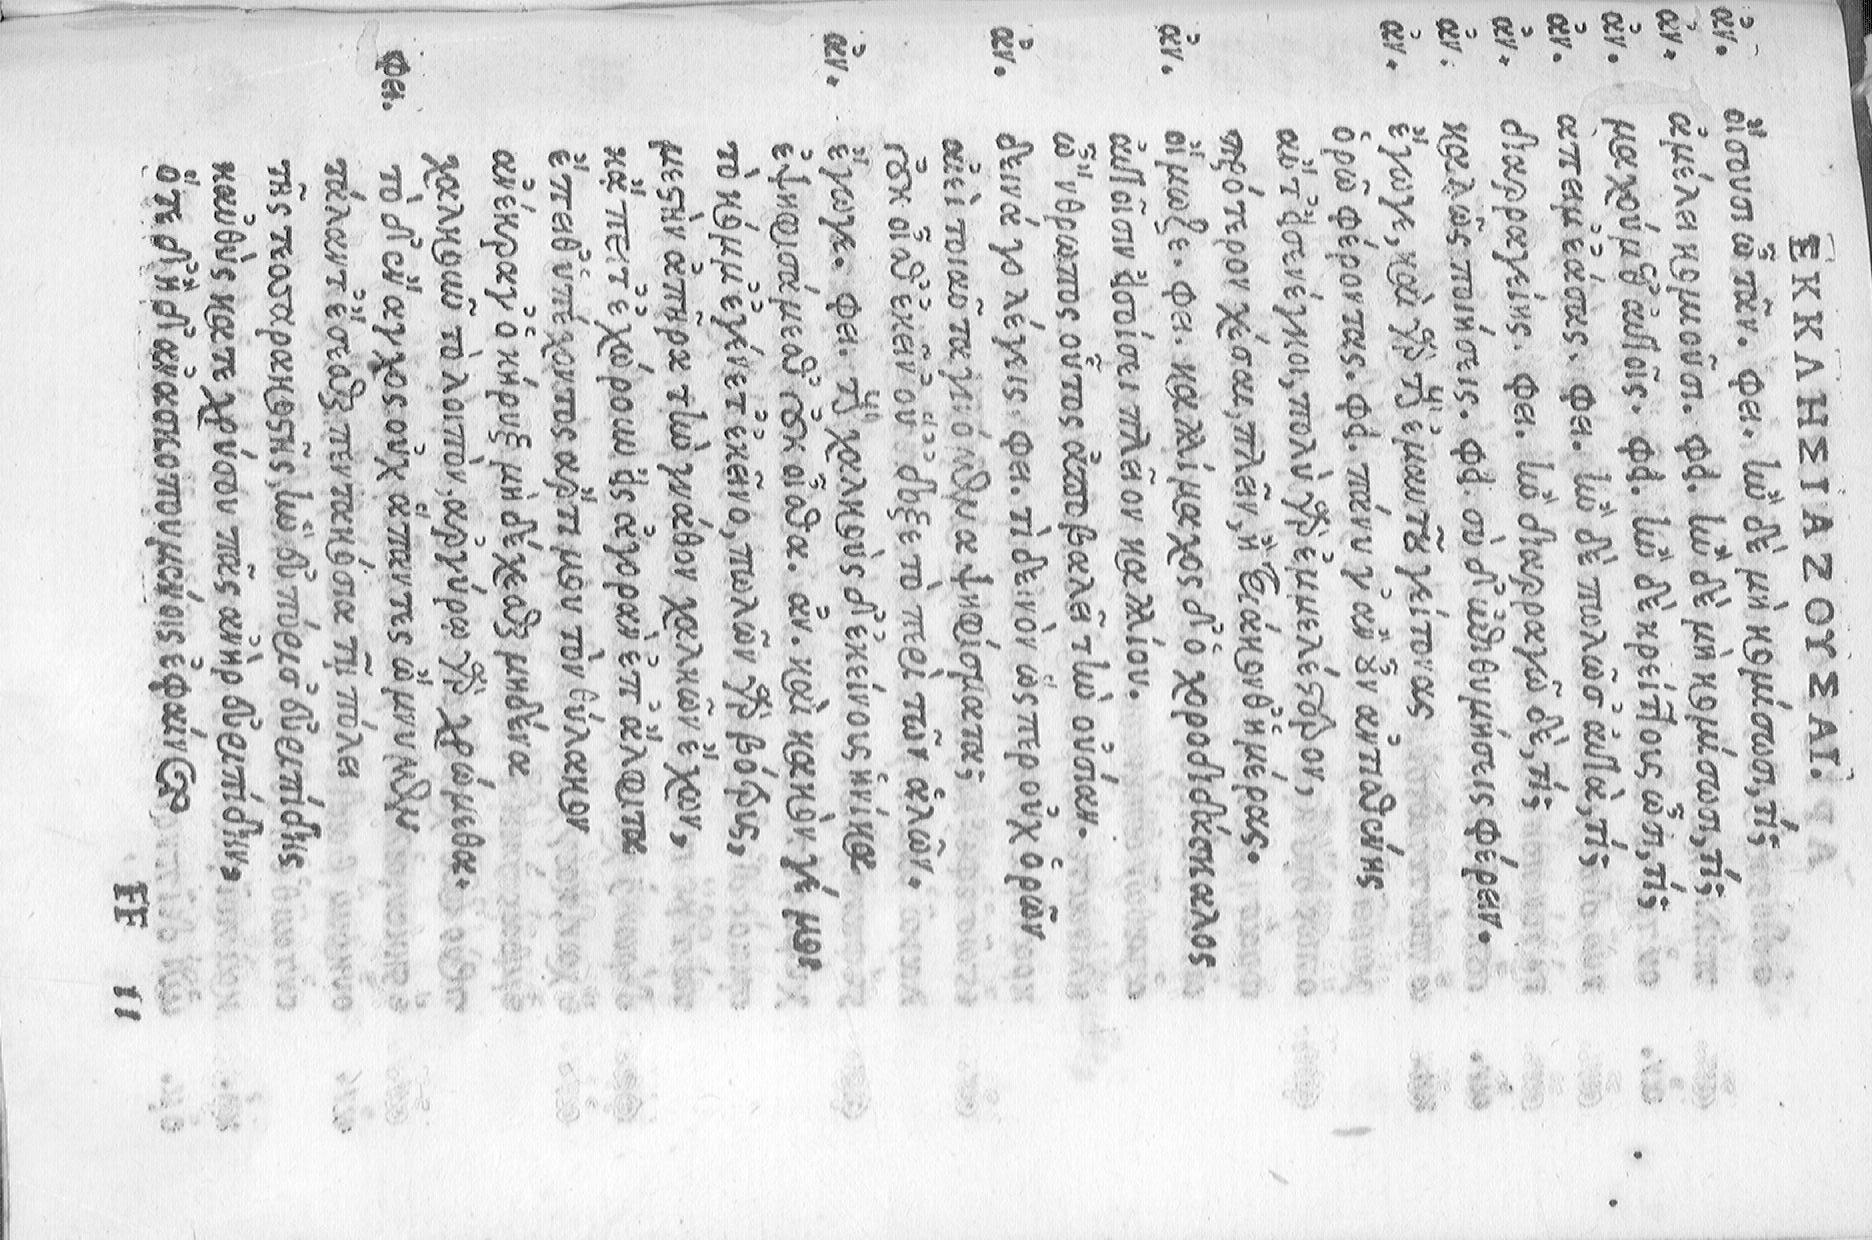 ΕΚΚΛΗΣΙΑΖΟΥΣΑΙ.
ἀν. οἴσουσιν ὦ τᾶν. φει. ἢν δὲ μὴ κομίσωσι, τί;
ἀν. ἀμέλει κομιοῦσι. φδ. ἢν δὲ μὴ κομίσωσι, τί;
ἀν. μαχούμεθ' αὐτοῖς. φδ. ἢν δὲ κρείττους ὦσι, τί;
ἀν. ἄπειμ' ἐάσας. φει. ἢν δὲ πωλῶσ' αὐτὰ, τί;
ἀν. διαρραγείης. φει. ἢν διαρραγῶ δὲ, τί;
ἀν. καλῶς ποιήσεις. φδ. σὺ δ' ἐπιθυμήσεις φέρειν.
ἀν. ἔγωγε, καὶ γὰρ τοὺς ἐμαυτοῦ γείτονας
ὁρῶ φέροντας. φδ. πάνυ γ' ἂν οὖν ἀντισθένης
αὔτ' εἰσενέγκοι, πολὺ γὰρ ἐμμελέστερον,
πρότερον χέσαι, πλεῖν, ἢ τριάκονθ' ἡμέρας.
ἀν. οἴμωζε. φει. καλλίμαχος δ' ὁ χοροδιδάσκαλος
αὐτοῖσιν εἰσοίσει πλεῖον καλλίου.
ὤνθρωπος οὗτος ἀποβαλεῖ τὴν οὐσίαν.
ἀν. δεινά γε λέγεις. φει. τί δεινὸν ὥσπερ οὐχ ὁρῶν
ἀεὶ τοιαῦτα γινόμενα ψηφίσματα;
οὐκ οἶσθ' ἐκεῖν' οὔδοξε τὸ περὶ τῶν ἁλῶν.
ἀν. ἔγωγε. φει. τοὺς χαλκοῦς δ' ἐκείνους ἡνίκα
ἐψηφισάμεσθ' οὐκ οἶσθα. ἀν. καὶ κακὸν γέ μοι
τὸ κόμμ' ἐγένετ' ἐκεῖνο, πωλῶν γὰρ βότρυς,
μεστὴν ἀπῆρα τὴν γνάθον χαλκῶν ἔχων,
κἄπειτ' ἐχώρουν εἰς ἀγορὰν ἐπ' ἄλφιτα
ἔπειθ' ὑπέχοντος ἄρτι μου τὸν θύλακον
ἀνέκραγ' ὁ κήρυξ μὴ δέχεσθαι μηδένα
χαλκοῦν τὸ λοιπὸν, ἀργύρῳ γὰρ χρώμεθα.
φει. τὸ δ' ἔναγχος οὐχ ἅπαντες ὤμνυμεν
τάλαντ' ἔσεσθαι πεντακόσια τῇ πόλει
τῆς τεσσαρακοστῆς, ἣν εὐπόρισ' εὐριπίδης
κεὐθὺς κατεχρύσου πᾶς ἀνὴρ εὐριπίδην,
ὅτε δὴ δ' ἀνασκοπουμένοις ἐφαίνετο
EE ii